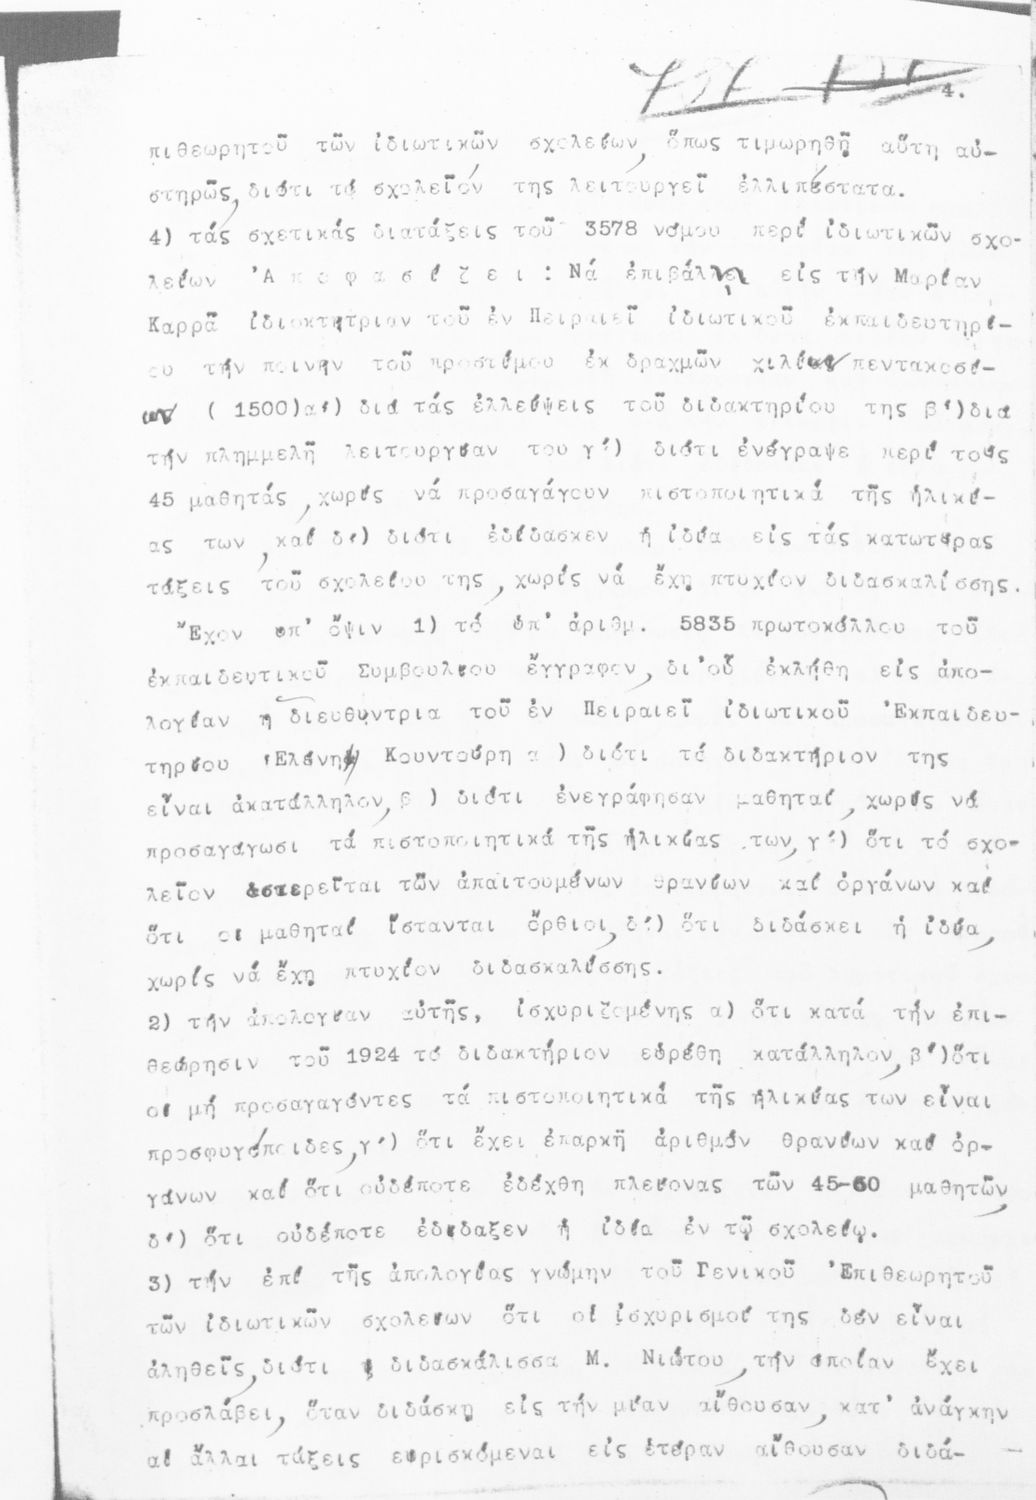 4.
πιθεωρητοῦ τῶν ἰδιωτικῶν σχολείων, ὅπως τιμωρηθῇ αὕτη αὐ-
στηρῶς, διότι τό σχολεῖόν της λειτουργεῖ ἐλλιπέστατα.
4) τάς σχετικάς διατάξεις τοῦ 3578 νόμου περί ἰδιωτικῶν σχο-
λείων Ἀ π ο φ α σ ί ζ ε ι : Νά ἐπιβάλλῃ εἰς τήν Μαρίαν
Καρρᾶ ἰδιοκτήτριαν τοῦ ἐν Πειραιεῖ ἰδιωτικοῦ ἐκπαιδευτηρί-
ου τήν ποινήν τοῦ προστίμου ἐκ δραχμῶν χιλίων πεντακοσί-
ων ( 1500)α') διά τάς ἐλλείψεις τοῦ διδακτηρίου της β')διά
τήν πλημμελῆ λειτουργίαν του γ') διότι ἐνέγραψε περί τούς
45 μαθητάς, χωρίς νά προσαγάγουν πιστοποιητικά τῆς ἡλικί-
ας των, καί δ') διότι ἐδίδασκεν ἡ ἰδία εἰς τάς κατωτέρας
τάξεις τοῦ σχολείου της, χωρίς νά ἔχῃ πτυχίον διδασκαλίσσης.
Ἔχον ὑπ' ὄψιν 1) τό ὑπ' ἀριθμ. 5835 πρωτοκόλλου τοῦ
ἐκπαιδευτικοῦ Συμβουλίου ἔγγραφον, δι'οὗ ἐκλήθη εἰς ἀπο-
λογίαν ἡ διευθύντρια τοῦ ἐν Πειραιεῖ ἰδιωτικοῦ Ἐκπαιδευ-
τηρίου Ἑλένη Κουντούρη α ) διότι τό διδακτήριον της
εἶναι ἀκατάλληλον, β ) διότι ἐνεγράφησαν μαθηταί, χωρίς νά
προσαγάγωσι τά πιστοποιητικά τῆς ἡλικίας των, γ') ὅτι τό σχο-
λεῖον ὑστερεῖται τῶν ἀπαιτουμένων θρανίων καί ὀργάνων καί
ὅτι οἱ μαθηταί ἵστανται ὄρθιοι, δ') ὅτι διδάσκει ἡ ἰδία,
χωρίς νά ἔχῃ πτυχίον διδασκαλίσσης.
2) τήν ἀπολογίαν αὐτῆς, ἰσχυριζομένης α) ὅτι κατά τήν ἐπι-
θεώρησιν τοῦ 1924 τό διδακτήριον εὑρέθη κατάλληλον, β')ὅτι
οἱ μή προσαγαγόντες τά πιστοποιητικά τῆς ἡλικίας των εἶναι
προσφυγόπαιδες, γ') ὅτι ἔχει ἐπαρκῆ ἀριθμόν θρανίων καί ὀρ-
γάνων καί ὅτι οὐδέποτε ἐδέχθη πλείονας τῶν 45-60 μαθητῶν,
δ') ὅτι οὐδέποτε ἐδίδαξεν ἡ ἰδία ἐν τῷ σχολείῳ.
3) τήν ἐπί τῆς ἀπολογίας γνώμην τοῦ Γενικοῦ Ἐπιθεωρητοῦ
τῶν ἰδιωτικῶν σχολείων ὅτι οἱ ἰσχυρισμοί της δέν εἶναι
ἀληθεῖς, διότι ἡ διδασκάλισσα Μ. Νιώτου, τήν ὁποίαν ἔχει
προσλάβει, ὅταν διδάσκῃ εἰς τήν μίαν αἴθουσαν, κατ' ἀνάγκην
αἱ ἄλλαι τάξεις εὑρισκόμεναι εἰς ἑτέραν αἴθουσαν διδά-